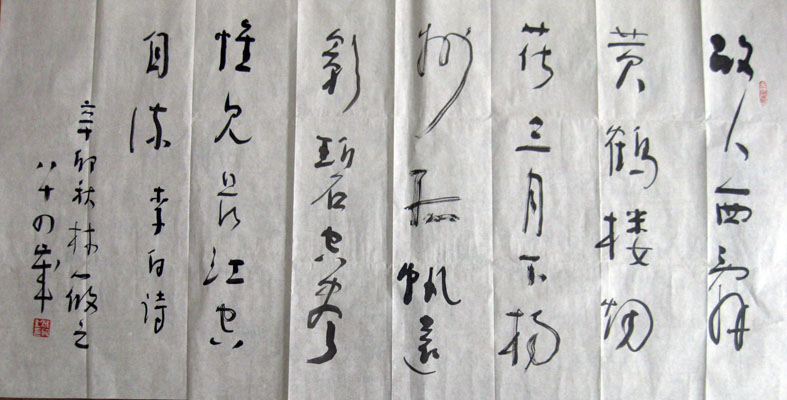 故人西辞
黄鹤楼烟
花三月下扬
州孤帆远
影碧空尽
惟见长江空
自流 李白诗
辛卯秋林筱之
八十四岁